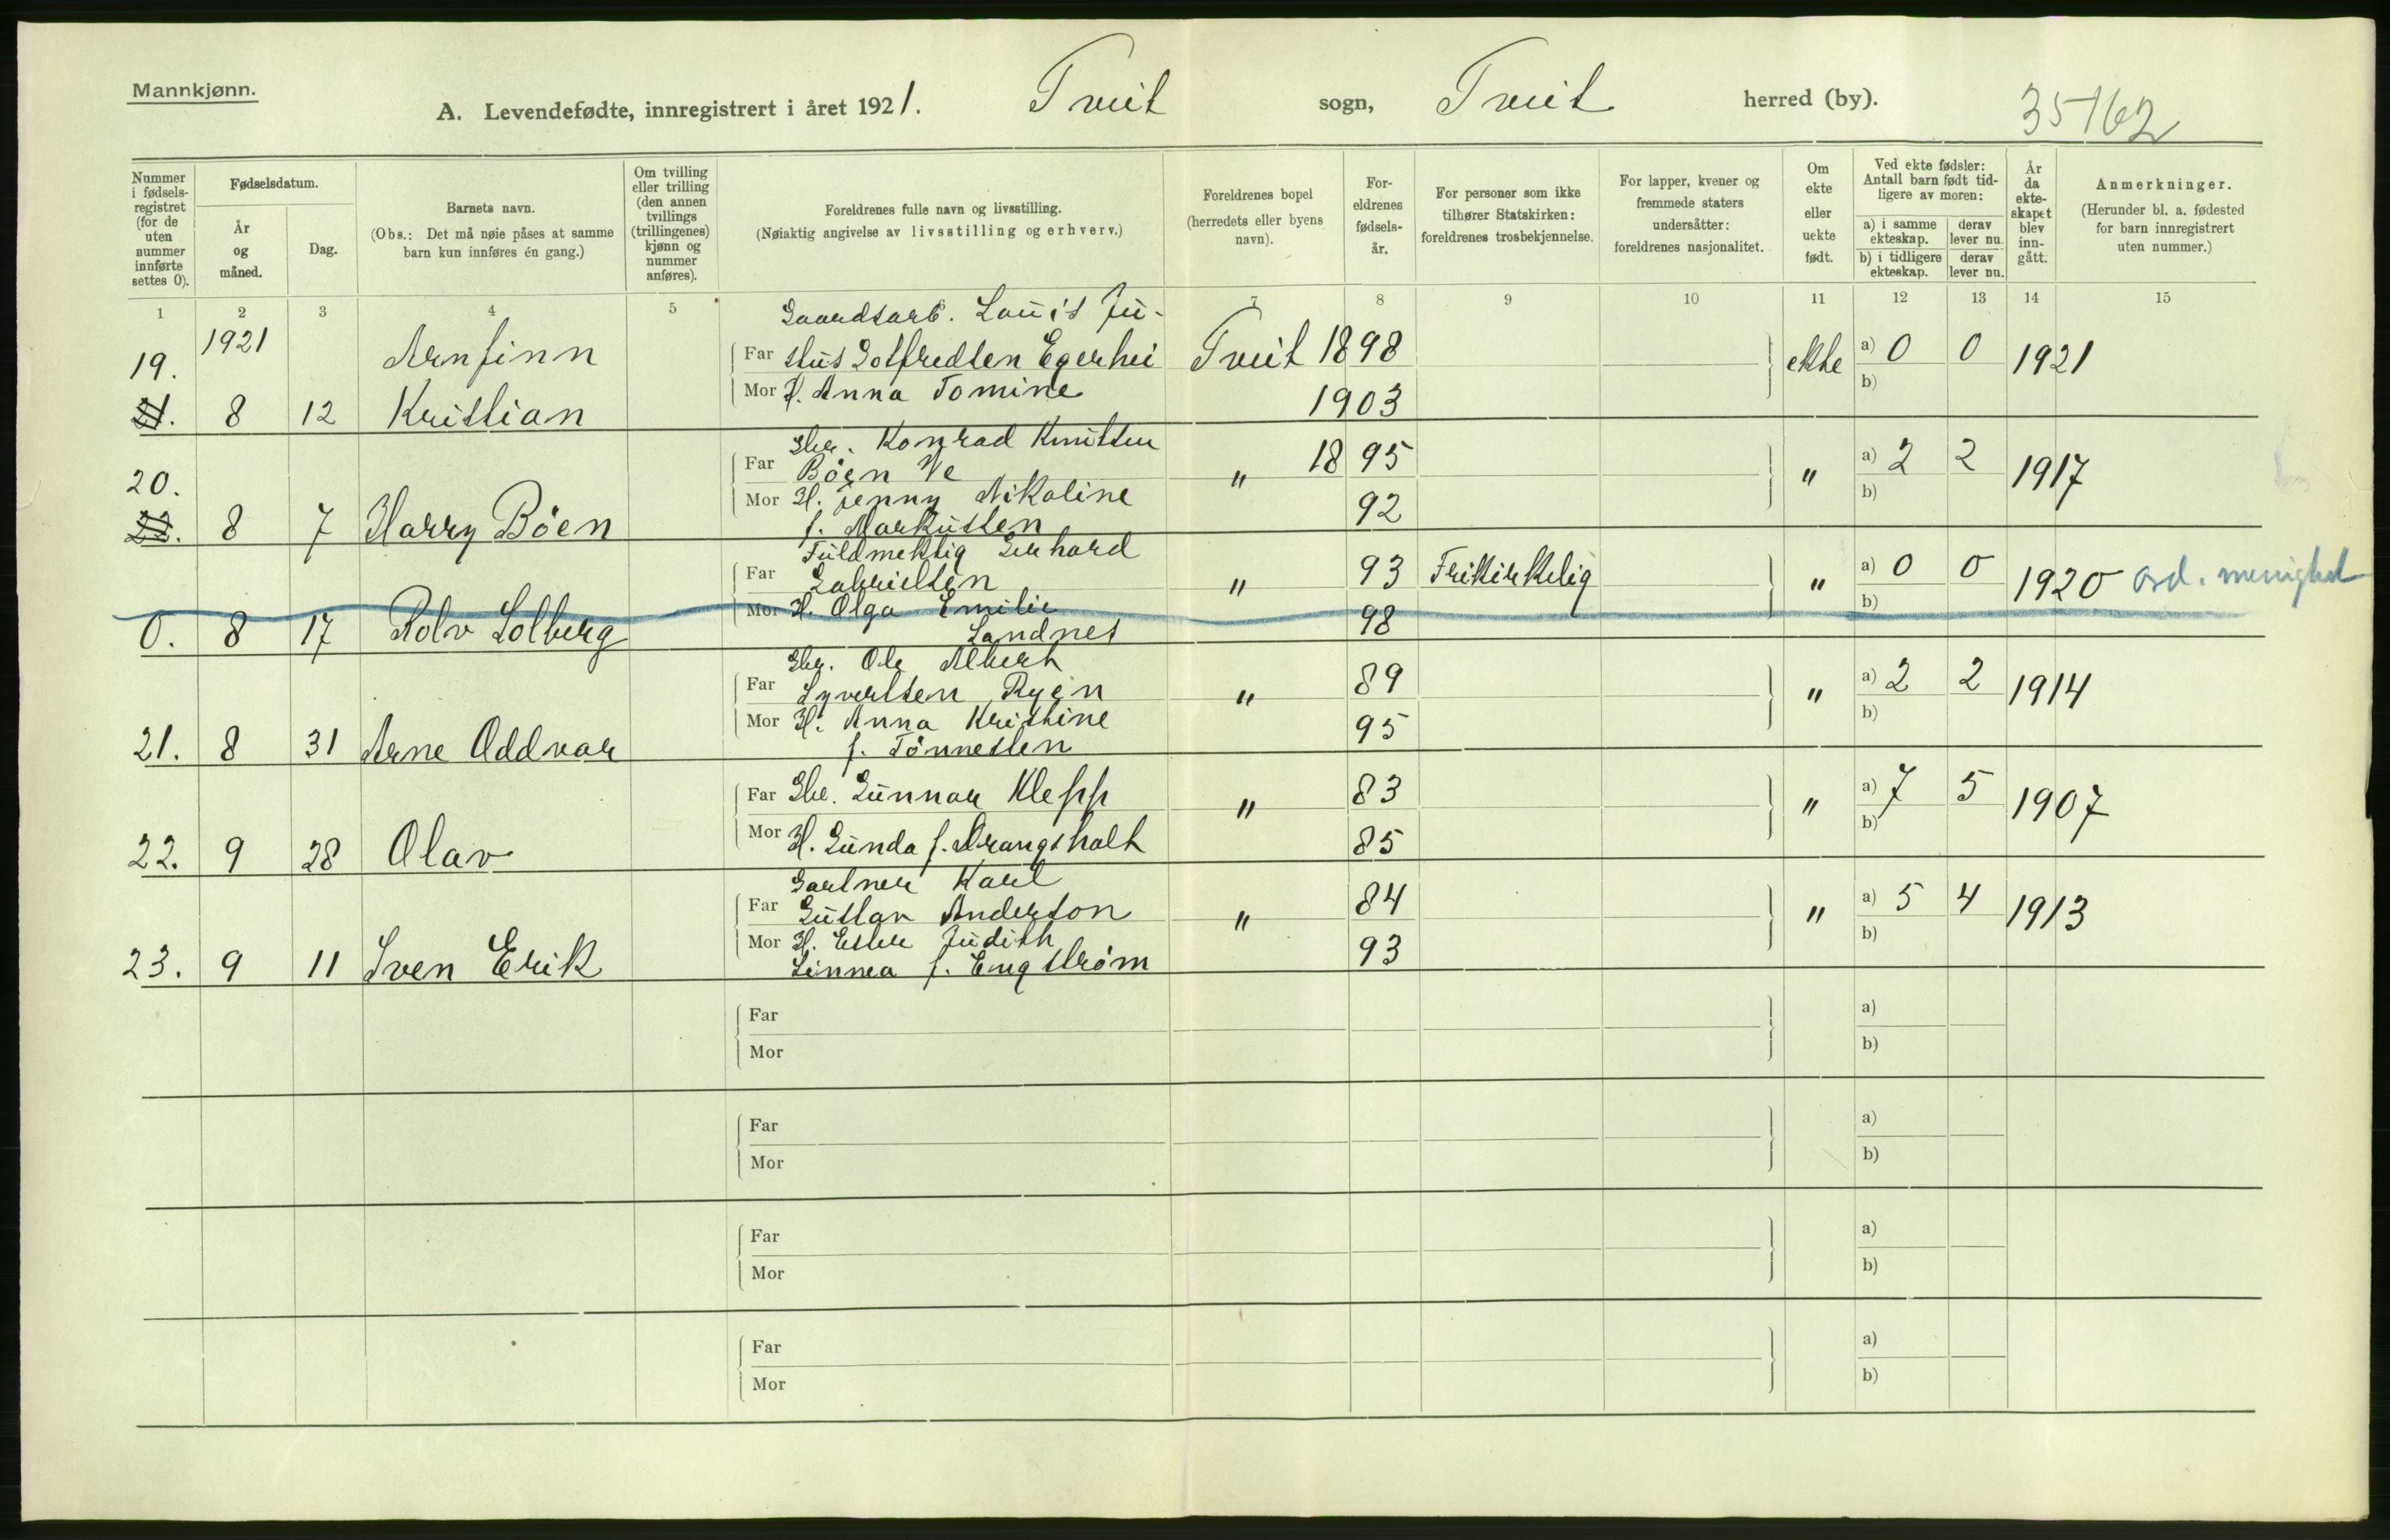 Mannkjønn.
A. Levendefødte, innregistrert i året 1921. Tveit sogn, Tveit herred (by).
35162
Nummer i fødsels-registret (for de uten nummer innførte settes 0).
Fødselsdatum.
År og måned.
Dag.
Barnets navn.
(Obs.: Det må nøie påses at samme barn kun innføres én gang.)
Om tvilling eller trilling (den annen tvillings (trillingenes) kjønn og nummer anføres).
Foreldrenes fulle navn og livsstilling.
(Nøiaktig angivelse av livsstilling og erhverv.)
Foreldrenes bopel (herredets eller byens navn).
For-eldrenes fødsels-år.
For personer som ikke tilhører Statskirken: foreldrenes trosbekjennelse.
For lapper, kvener og fremmede staters undersåtter: foreldrenes nasjonalitet.
Om ekte eller uekte født.
Ved ekte fødsler: Antall barn født tid-ligere av moren:
a) i samme ekteskap.
derav lever nu.
b) i tidligere ekteskap.
derav lever nu.
År da ekte-skapet blev inn-gått.
Anmerkninger.
(Herunder bl. a. fødested for barn innregistrert uten nummer.)
1 2 3 4 5 6 7 8 9 10 11 12 13 14 15
Gaardsarb. Louis Ju-
19. 1921 Arnfinn Far stus Gotfredsen Egerhei Tveit 1898 ekte a) 0 0 1921
21. 8 12 Kristian Mor H. Anna Tomine 1903 b)
Gbr. Konrad Knutsen
20. Far Böen Ve " 1895 " a) 2 2 1917
22. 8 7 Harry Böen Mor H. Jenny Nikoline 92 b)
f. Markussen
Fuldmektig Gerhard
Far Gabrielsen " 93 Frikirkelig " a) 0 0 1920 and. menighet
0. 8 17 Rolv Solberg Mor H. Olga Emilie 98 b)
Sandnes
Gbr. Ole Albert
Far Syvertsen Ryen " 89 " a) 2 2 1914
Mor H. Anna Kristine 95 b)
21. 8 31 Arne Oddvar f. Tönnessen
Far Gbr. Gunnar Klepp " 83 " a) 7 5 1907
22. 9 28 Olav Mor H. Gunda f. Drangsholt 85 b)
Gartner Karl
Far Gustav Anderson " 84 " a) 5 4 1913
Mor H. Ester Judith 93 b)
23. 9 11 Sven Erik Linnea f. Engström
Far a)
Mor b)
Far a)
Mor b)
Far a)
Mor b)
Far a)
Mor b)